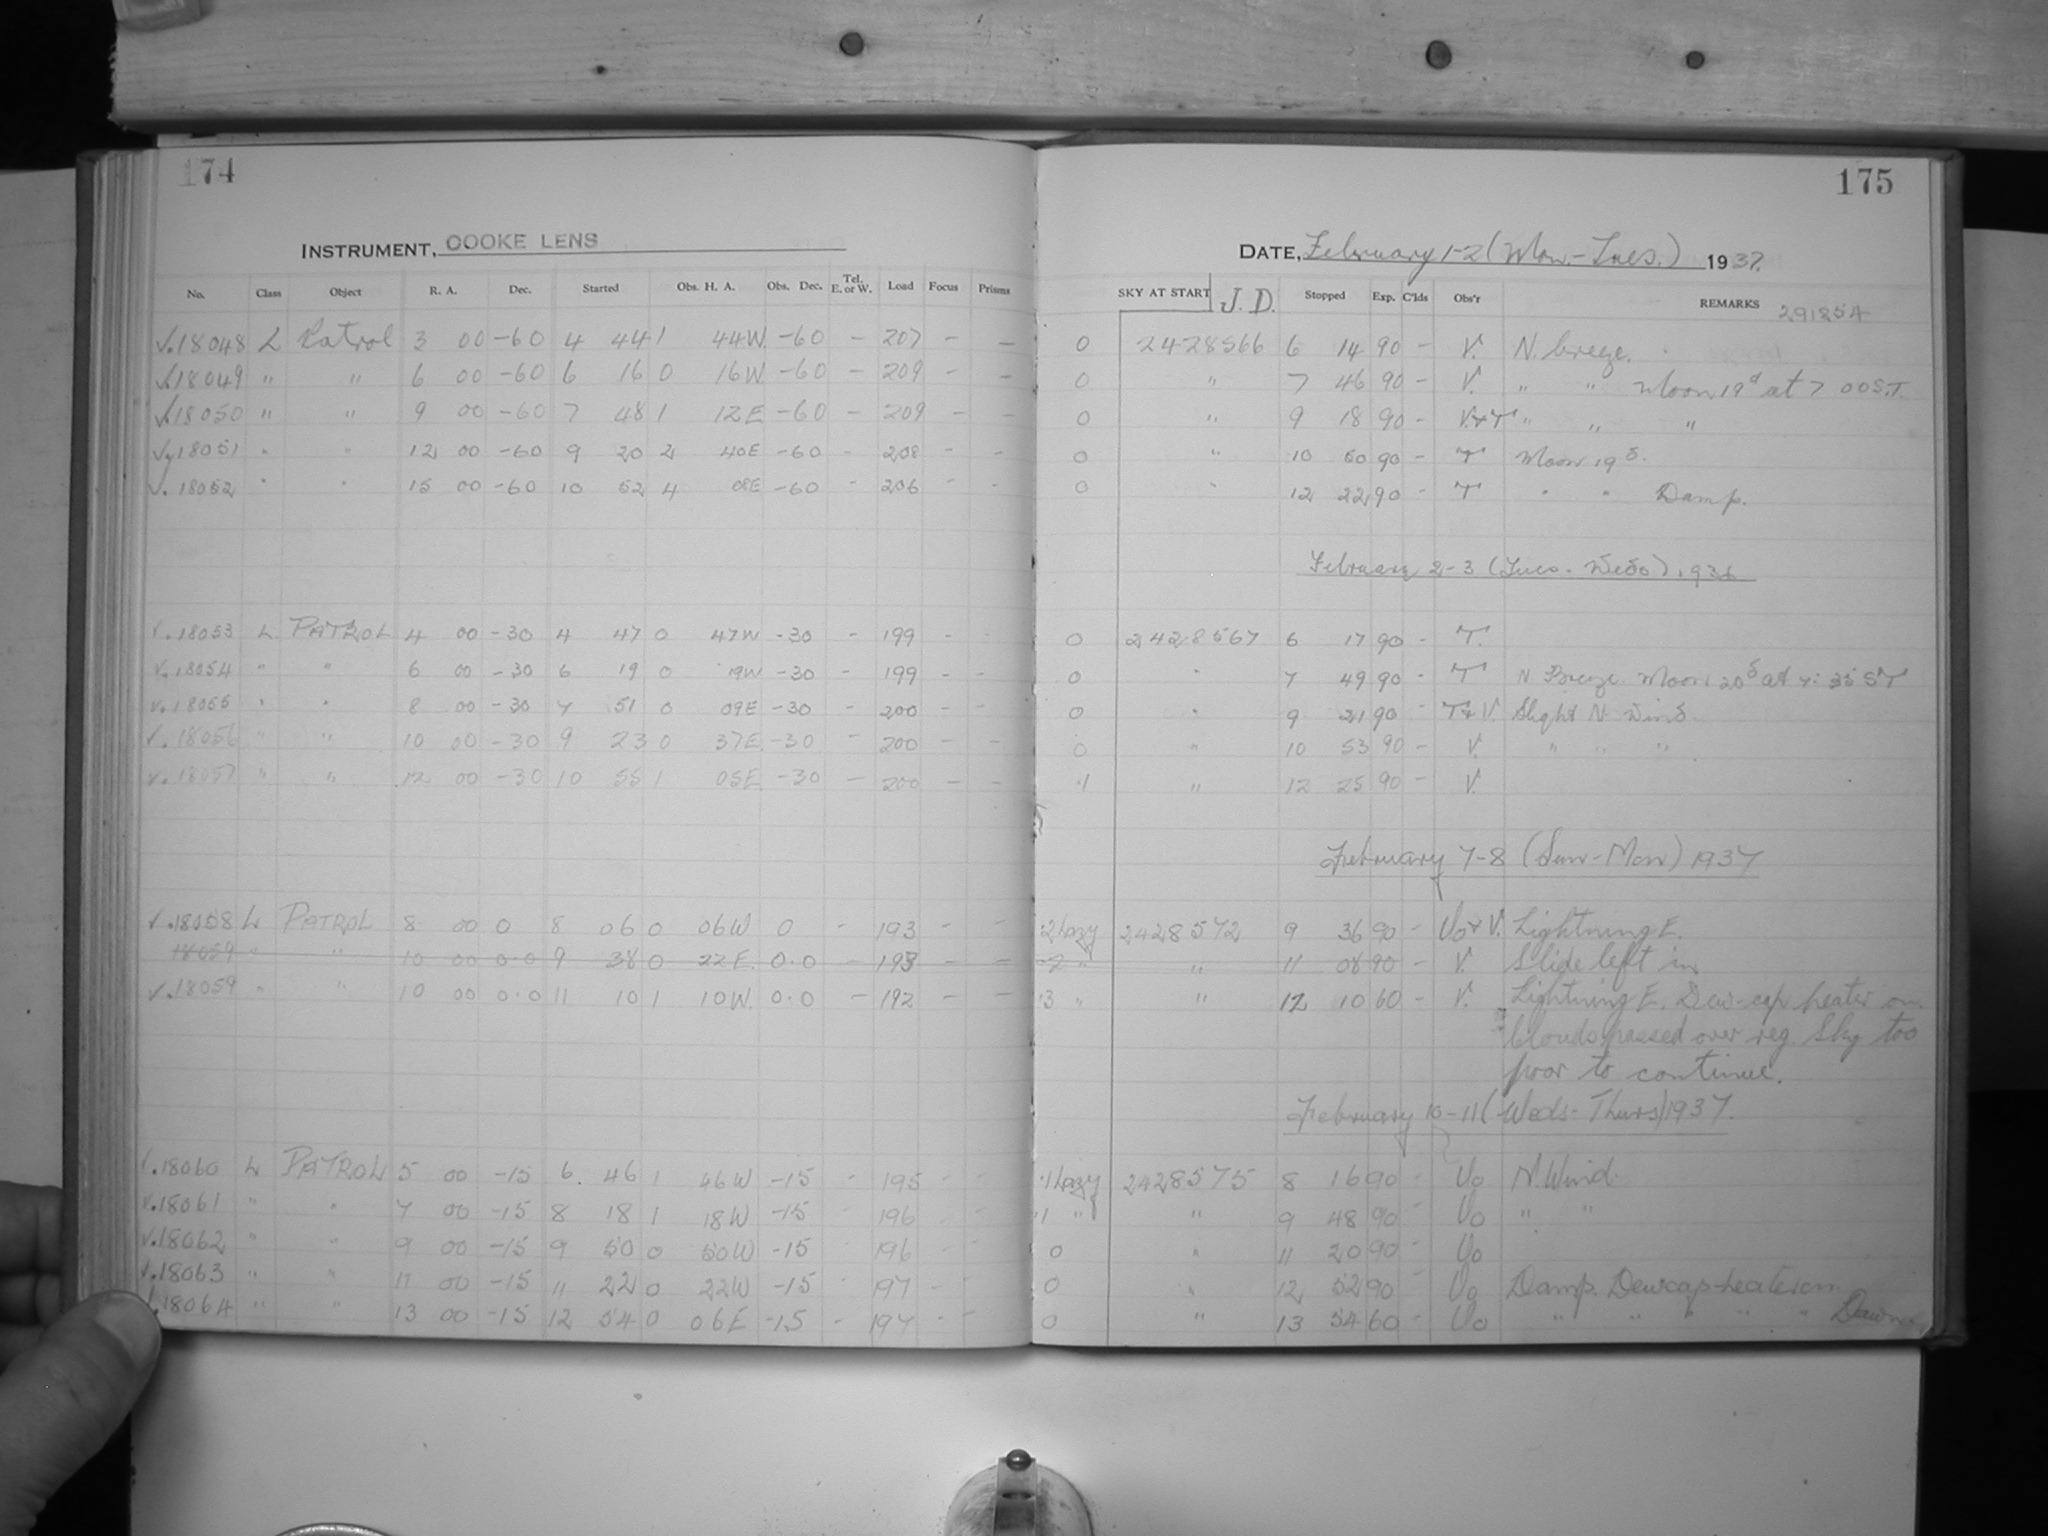 174
INSTRUMENT, COOKE LENS
No. Class Object R. A. Dec. Started Obs. H. A. Obs. Dec. Tel. E. or W. Load Focus Prisms
√.18048 L Patrol 3 00 -60 4 44 1 44W. -60 - 207 - -
√.18049 " " 6 00 -60 6 16 0 16W -60 - 209 - -
√.18050 " " 9 00 -60 7 48 1 12E -60 - 209 - -
√.18051 " " 12 00 -60 9 20 2 40E -60 - 208 - -
√.18052 " " 15 00 -60 10 52 4 08E -60 - 206 - -
√.18053 L PATROL 4 00 -30 4 47 0 47W -30 - 199 - -
√.18054 " " 6 00 -30 6 19 0 19W -30 - 199 - -
√.18055 " " 8 00 -30 7 51 0 09E -30 - 200 - -
√.18056 " " 10 00 -30 9 23 0 37E -30 - 200 - -
√.18057 " " 12 00 -30 10 55 1 05E -30 - 200 - -
√.18058 L PATROL 8 00 0 8 06 0 06W 0 - 193 - -
18059 " " 10 00 0.0 9 38 0 22E. 0.0 - 193 - -
√.18059 " " 10 00 0.0 11 10 1 10W. 0.0 - 192 - -
√.18060 L PATROL 5 00 -15 6. 46 1 46W -15 - 195 - -
√.18061 " " 7 00 -15 8 18 1 18W -15 - 196 - -
√.18062 " " 9 00 -15 9 50 0 50W -15 - 196 - -
√.18063 " " 11 00 -15 11 22 0 22W -15 - 197 - -
√.18064 " " 13 00 -15 12 54 0 06E -15 - 197 - -
175
DATE, February 1-2 (Mon.-Tues.) 1937.
SKY AT START J.D. Stopped Exp. C'lds Obs'r REMARKS 29185A
0 2428566 6 14 90 - V. N. breeze.
0 " 7 46 90 - V. " " Moon 19d at 7 00 S.T.
0 " 9 18 90 - V.+T " " "
0 " 10 50 90 - T Moon 19d.
0 " 12 22 90 - T " " Damp.
February 2-3 (Tues. - Weds) 1936
0 2428567 6 17 90 - T.
0 " 7 49 90 - T N Breeze. Moon 20d at 7:35 ST
0 " 9 21 90 - T+V. Slight N Wind.
0 " 10 53 90 - V. " " "
.1 " 12 25 90 - V.
February 7-8 (Sun-Mon) 1937
.2 hazy 2428572 9 36 90 - Uo+V. Lightning E.
.2 " " 11 08 90 - V. Slide left in
.3 " " 12 10 60 - V. Lightning E. Dew-cap heater on.
Clouds passed over reg. Sky too
poor to continue.
February 10-11 (Weds-Thurs) 1937.
.1 hazy 2428575 8 16 90 - Uo N. Wind.
.1 " " 9 48 90 - Uo " "
0 " 11 20 90 - Uo
0 " 12 52 90 - Uo Damp. Dewcap-heater on
0 " 13 54 60 - Uo " " " " Dawn.